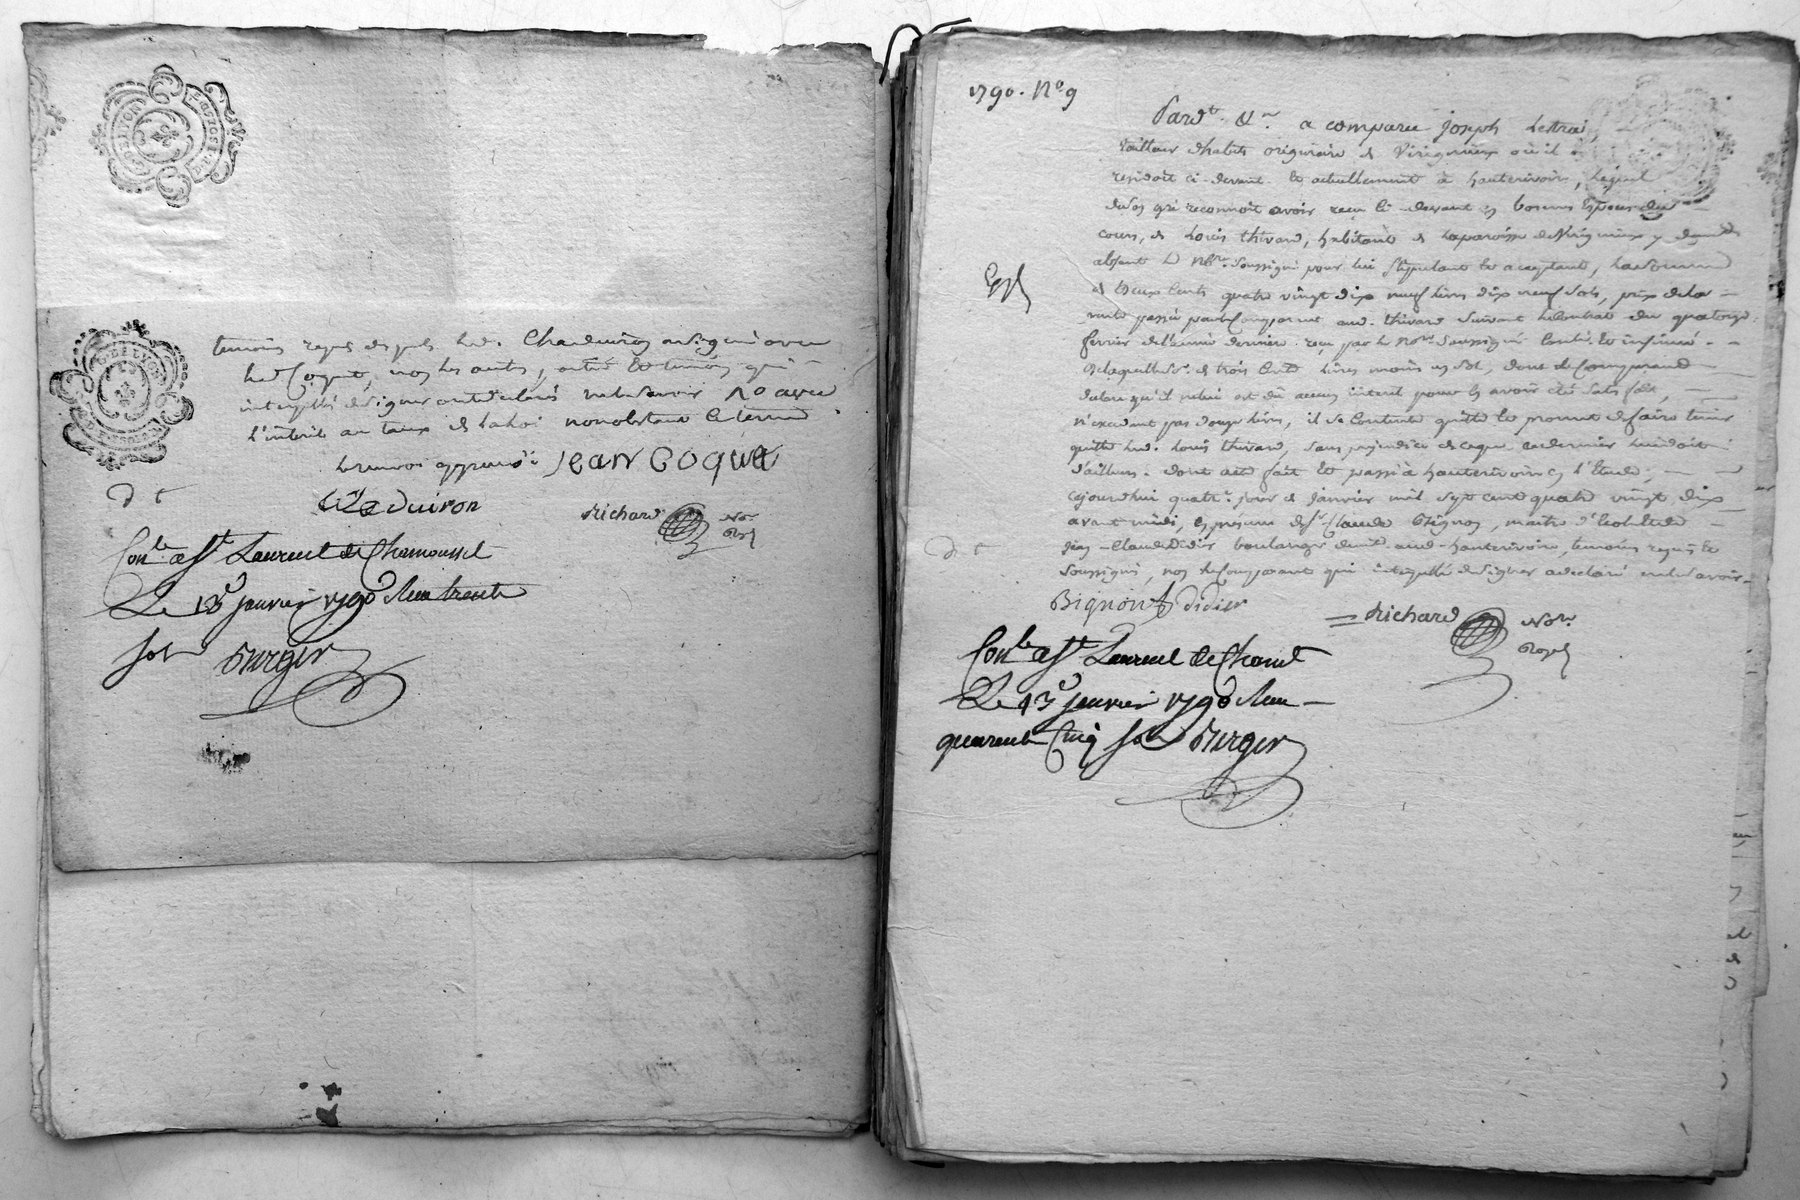 G. DE LYON
temoins requis Chaduiron
led. Coquet, non les autres, et temoins qui
interpellé de signer ont declaré ne le savoir avec
l'interets au taux de la loi nonobstant le terme
le renvoi approuvé Jean Coquet
Chaduiron Richard No.re Royl
Con.lé a St. Laurent de Chamousset
Le 13e janvier 1790 Reçu trente
sols Burger
1790. No. 9
Pard.t &.re a comparu Joseph
tailleur d'habits originaire de Virigneux où il
residoit ci-devant et actuellement à hauterivoire, lequel
de son gré reconnoit avoir reçu ci-devant en bonnes Especes du
cours, de Louis thivard, habitant de la paroisse de Virigneux y
absent le No.re soussigné pour lui stipulant et acceptant, la somme
de deux Cents quatre vingt dix neuf livres dix neuf sols, prix de la
vente passée par le Comparant aud. thivard suivant le Contrat du quatorze
fevrier de l'année derniere reçu par le No.re soussigné Controlé et insinué
de trois Cents livres moins un sol, dont le Comparant
declare qu'il ne lui est dû aucun interet pour les avoir été satisfait,
n'excedant pas douze livres, il se Contente quitte et promet de faire tenir
quitte led. Louis thivard, sans prejudice de ce que ce dernier lui doit
d'ailleurs. dont acte fait et passé à hauterivoire en l'Etude,
cejourd'hui quatr.e jour de Janvier mil sept cent quatre vingt dix
avant midi, en presence de S.r Claude Bignon, maitre d'Ecole et de
Jean-Claude Didier boulanger dem.t aud. hauterivoire, temoins requis et
soussignés, non le Comparant qui interpellé de signer a declaré ne le savoir
Bignon Didier Richard No.re Royl
Con.lé a St. Laurent de Chamt
Le 13e janvier 1790 Reçu
quarente Cinq sols Burger